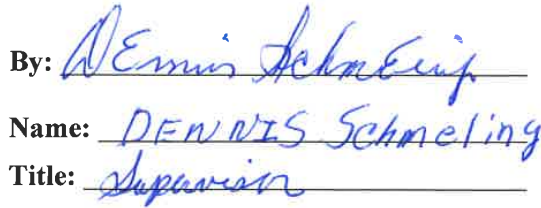 By: Dennis Schmeling
Name: DENNIS Schmeling
Title: Supervisor